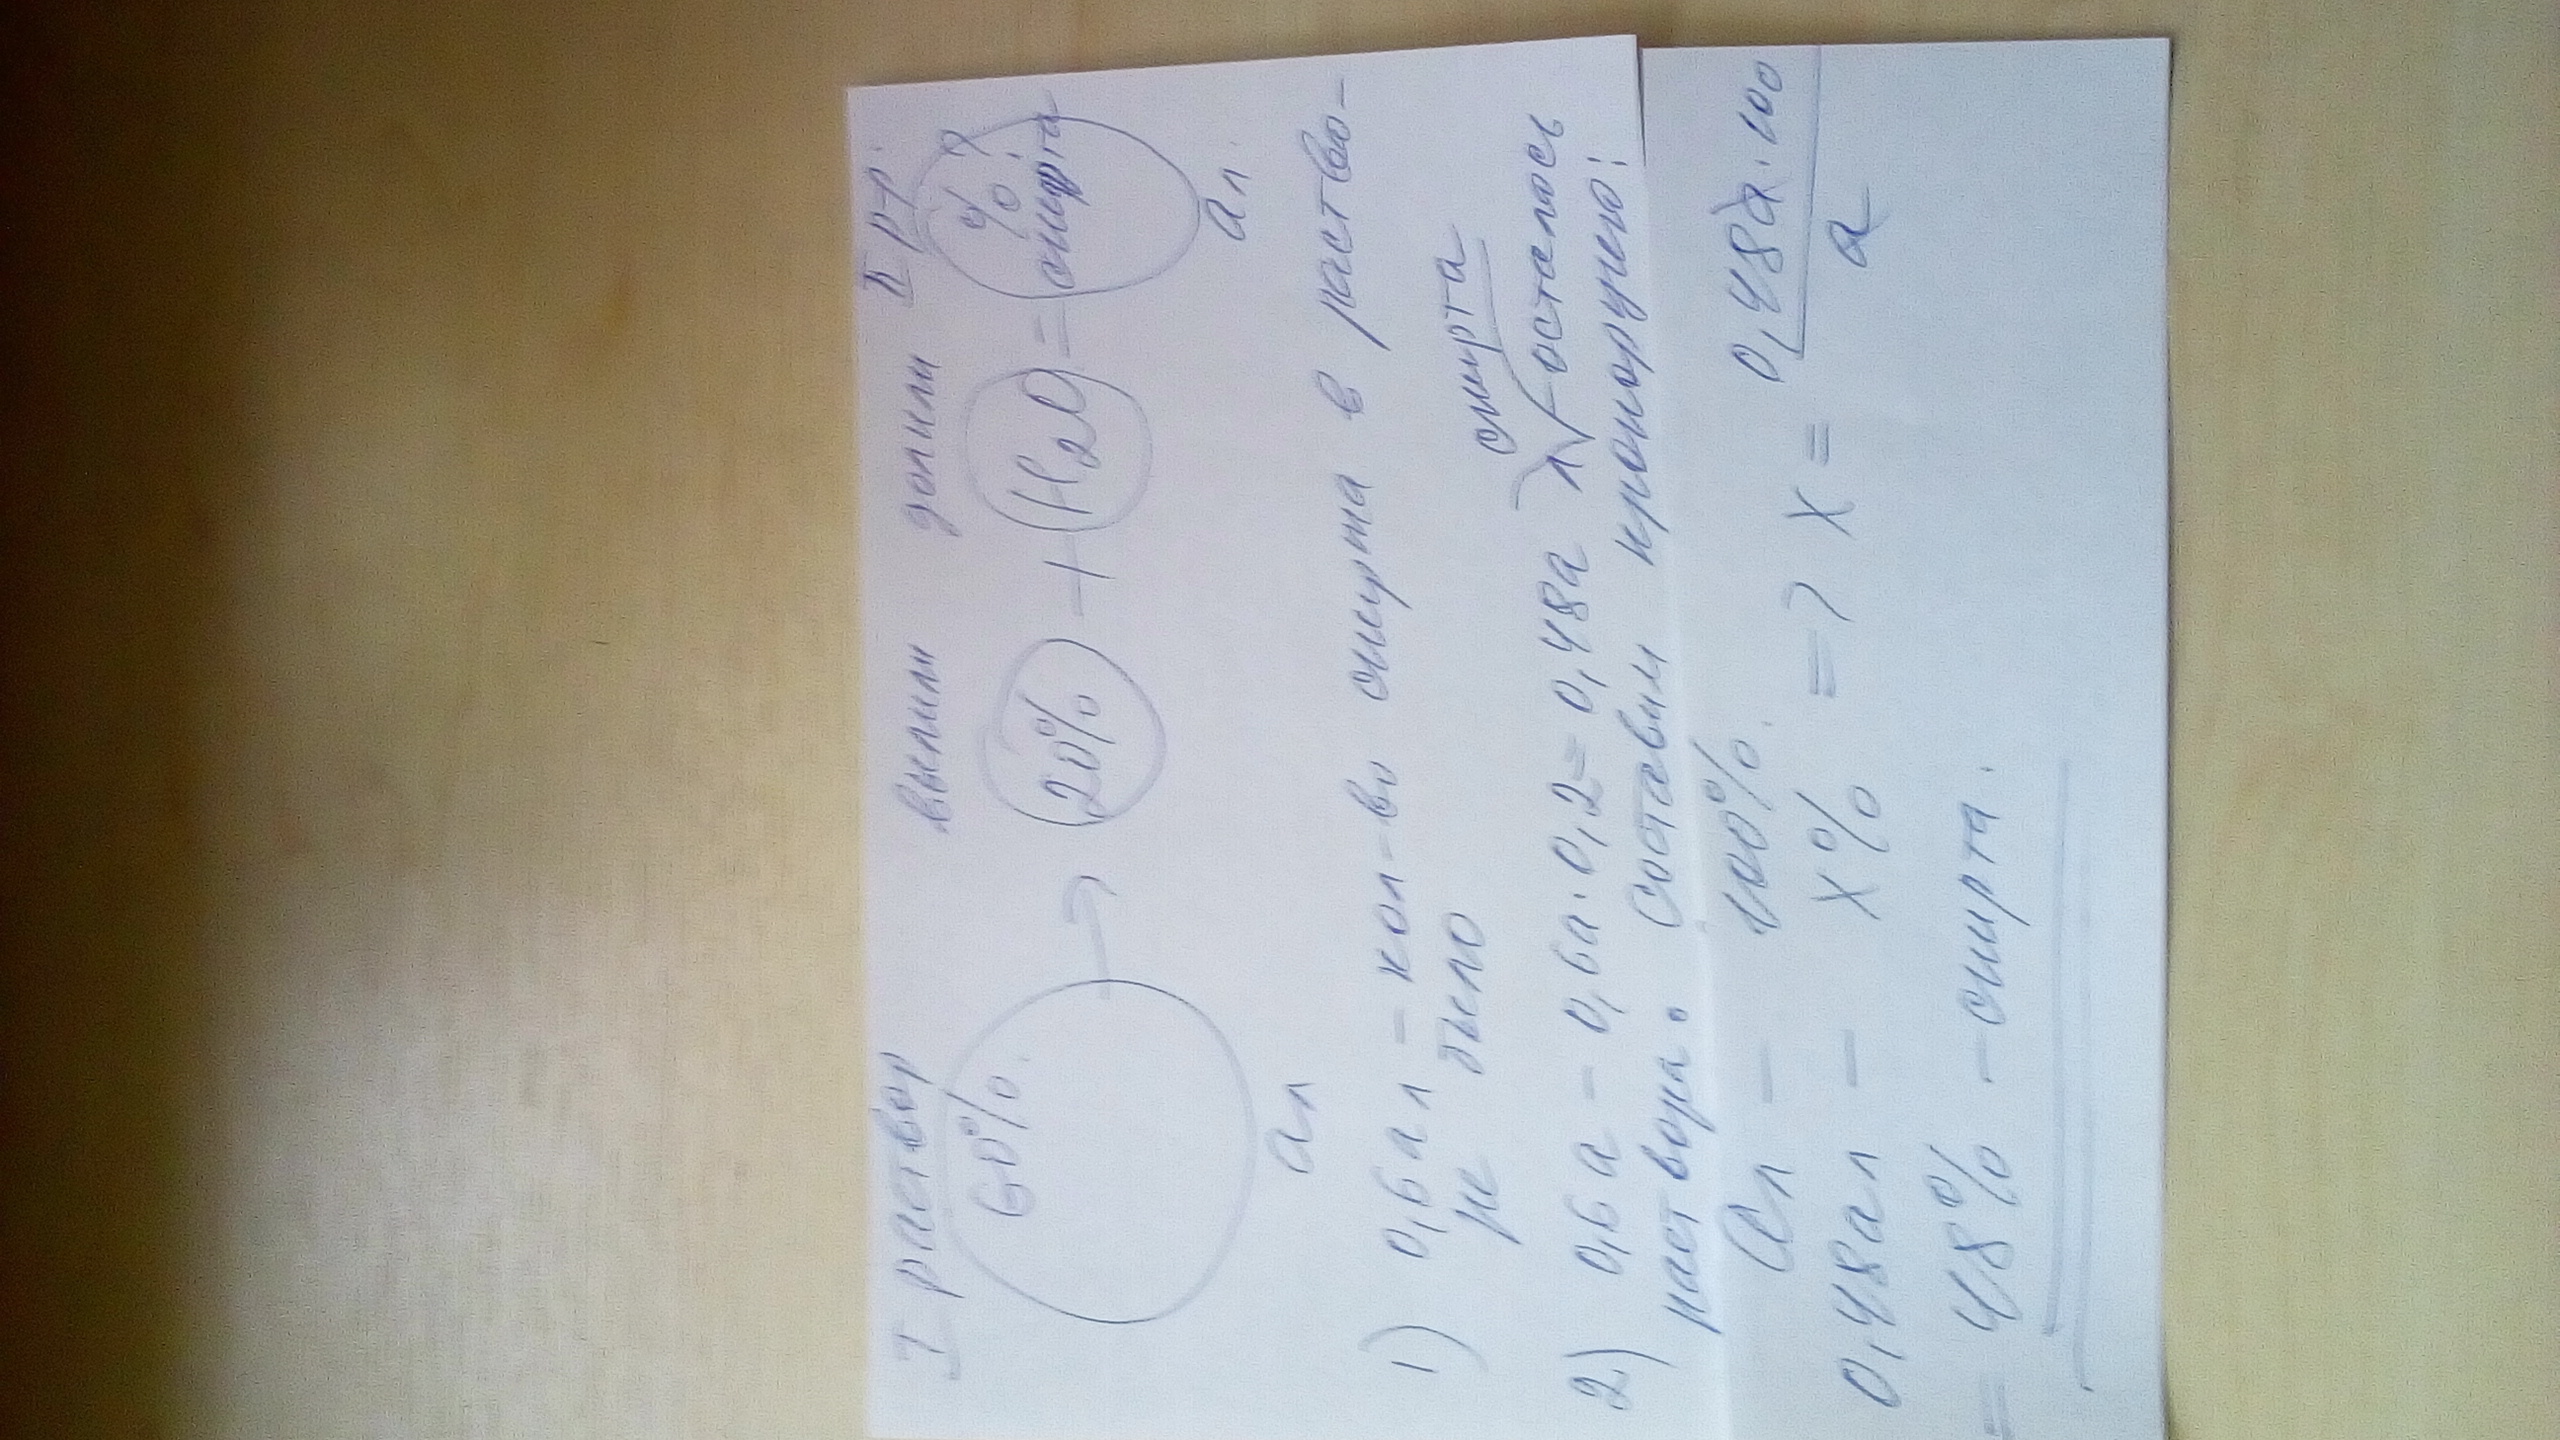 I раствор вылили долили II р-р.
60%. → 20% + H2O = % ?
спирта
ал ал.
1) 0,6ал - кол-во спирта в раство-
ре было
спирта
2) 0,6а - 0,6а·0,2 = 0,48а (л) (осталось
раствора. Составим пропорцию:
ал - 100%.
0,48ал - x% => x = 0,48а·100 / а
= 48% - спирта.